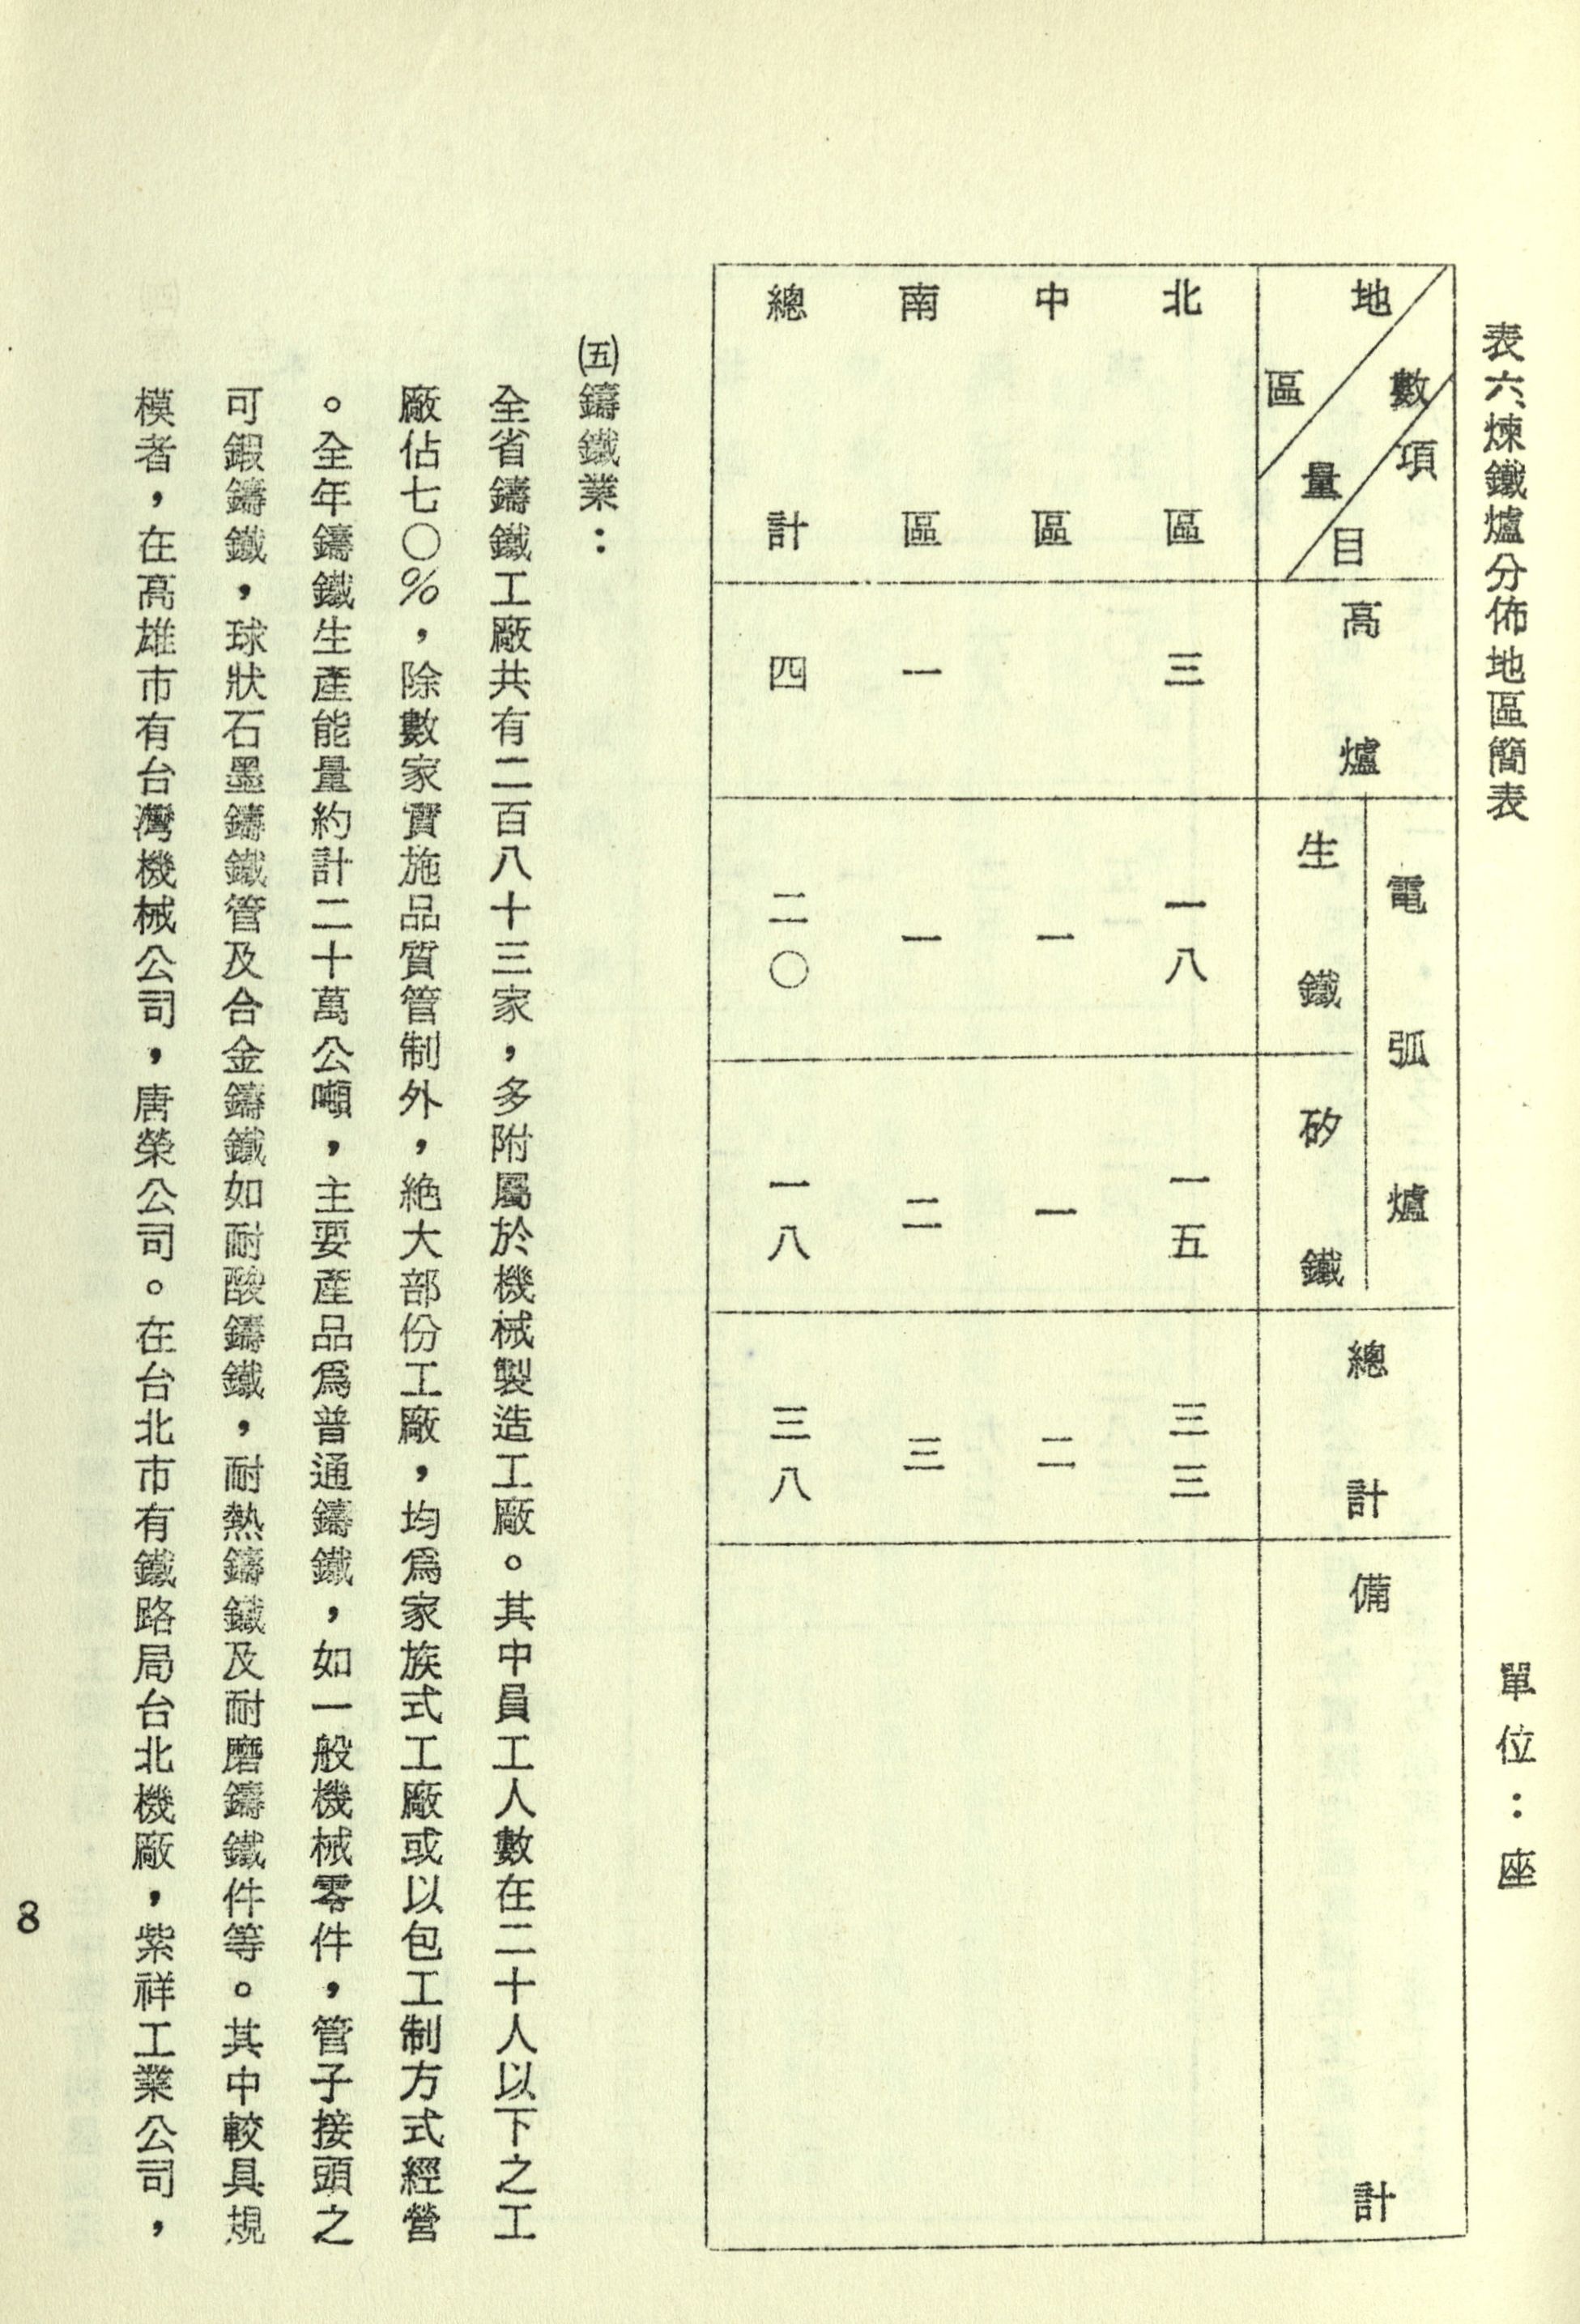 表六、煉鐵爐分佈地區簡表
單位：座
地區 數量 項目
高爐
電弧爐
生鐵
矽鐵
總計
備計
北區 三 一八 一五 三三
中區 一 一 二
南區 一 一 二 三
總計 四 二〇 一八 三八
㈤鑄鐵業：
全省鑄鐵工廠共有二百八十三家，多附屬於機械製造工廠。其中員工人數在二十人以下之工
廠佔七〇％，除數家實施品質管制外，絕大部份工廠，均爲家族式工廠或以包工制方式經營
。全年鑄鐵生產能量約計二十萬公噸，主要產品爲普通鑄鐵，如一般機械零件，管子接頭之
可鍛鑄鐵，球狀石墨鑄鐵管及合金鑄鐵如耐酸鑄鐵，耐熱鑄鐵及耐磨鑄鐵件等。其中較具規
模者，在高雄市有台灣機械公司，唐榮公司。在台北市有鐵路局台北機廠，紫祥工業公司，
8